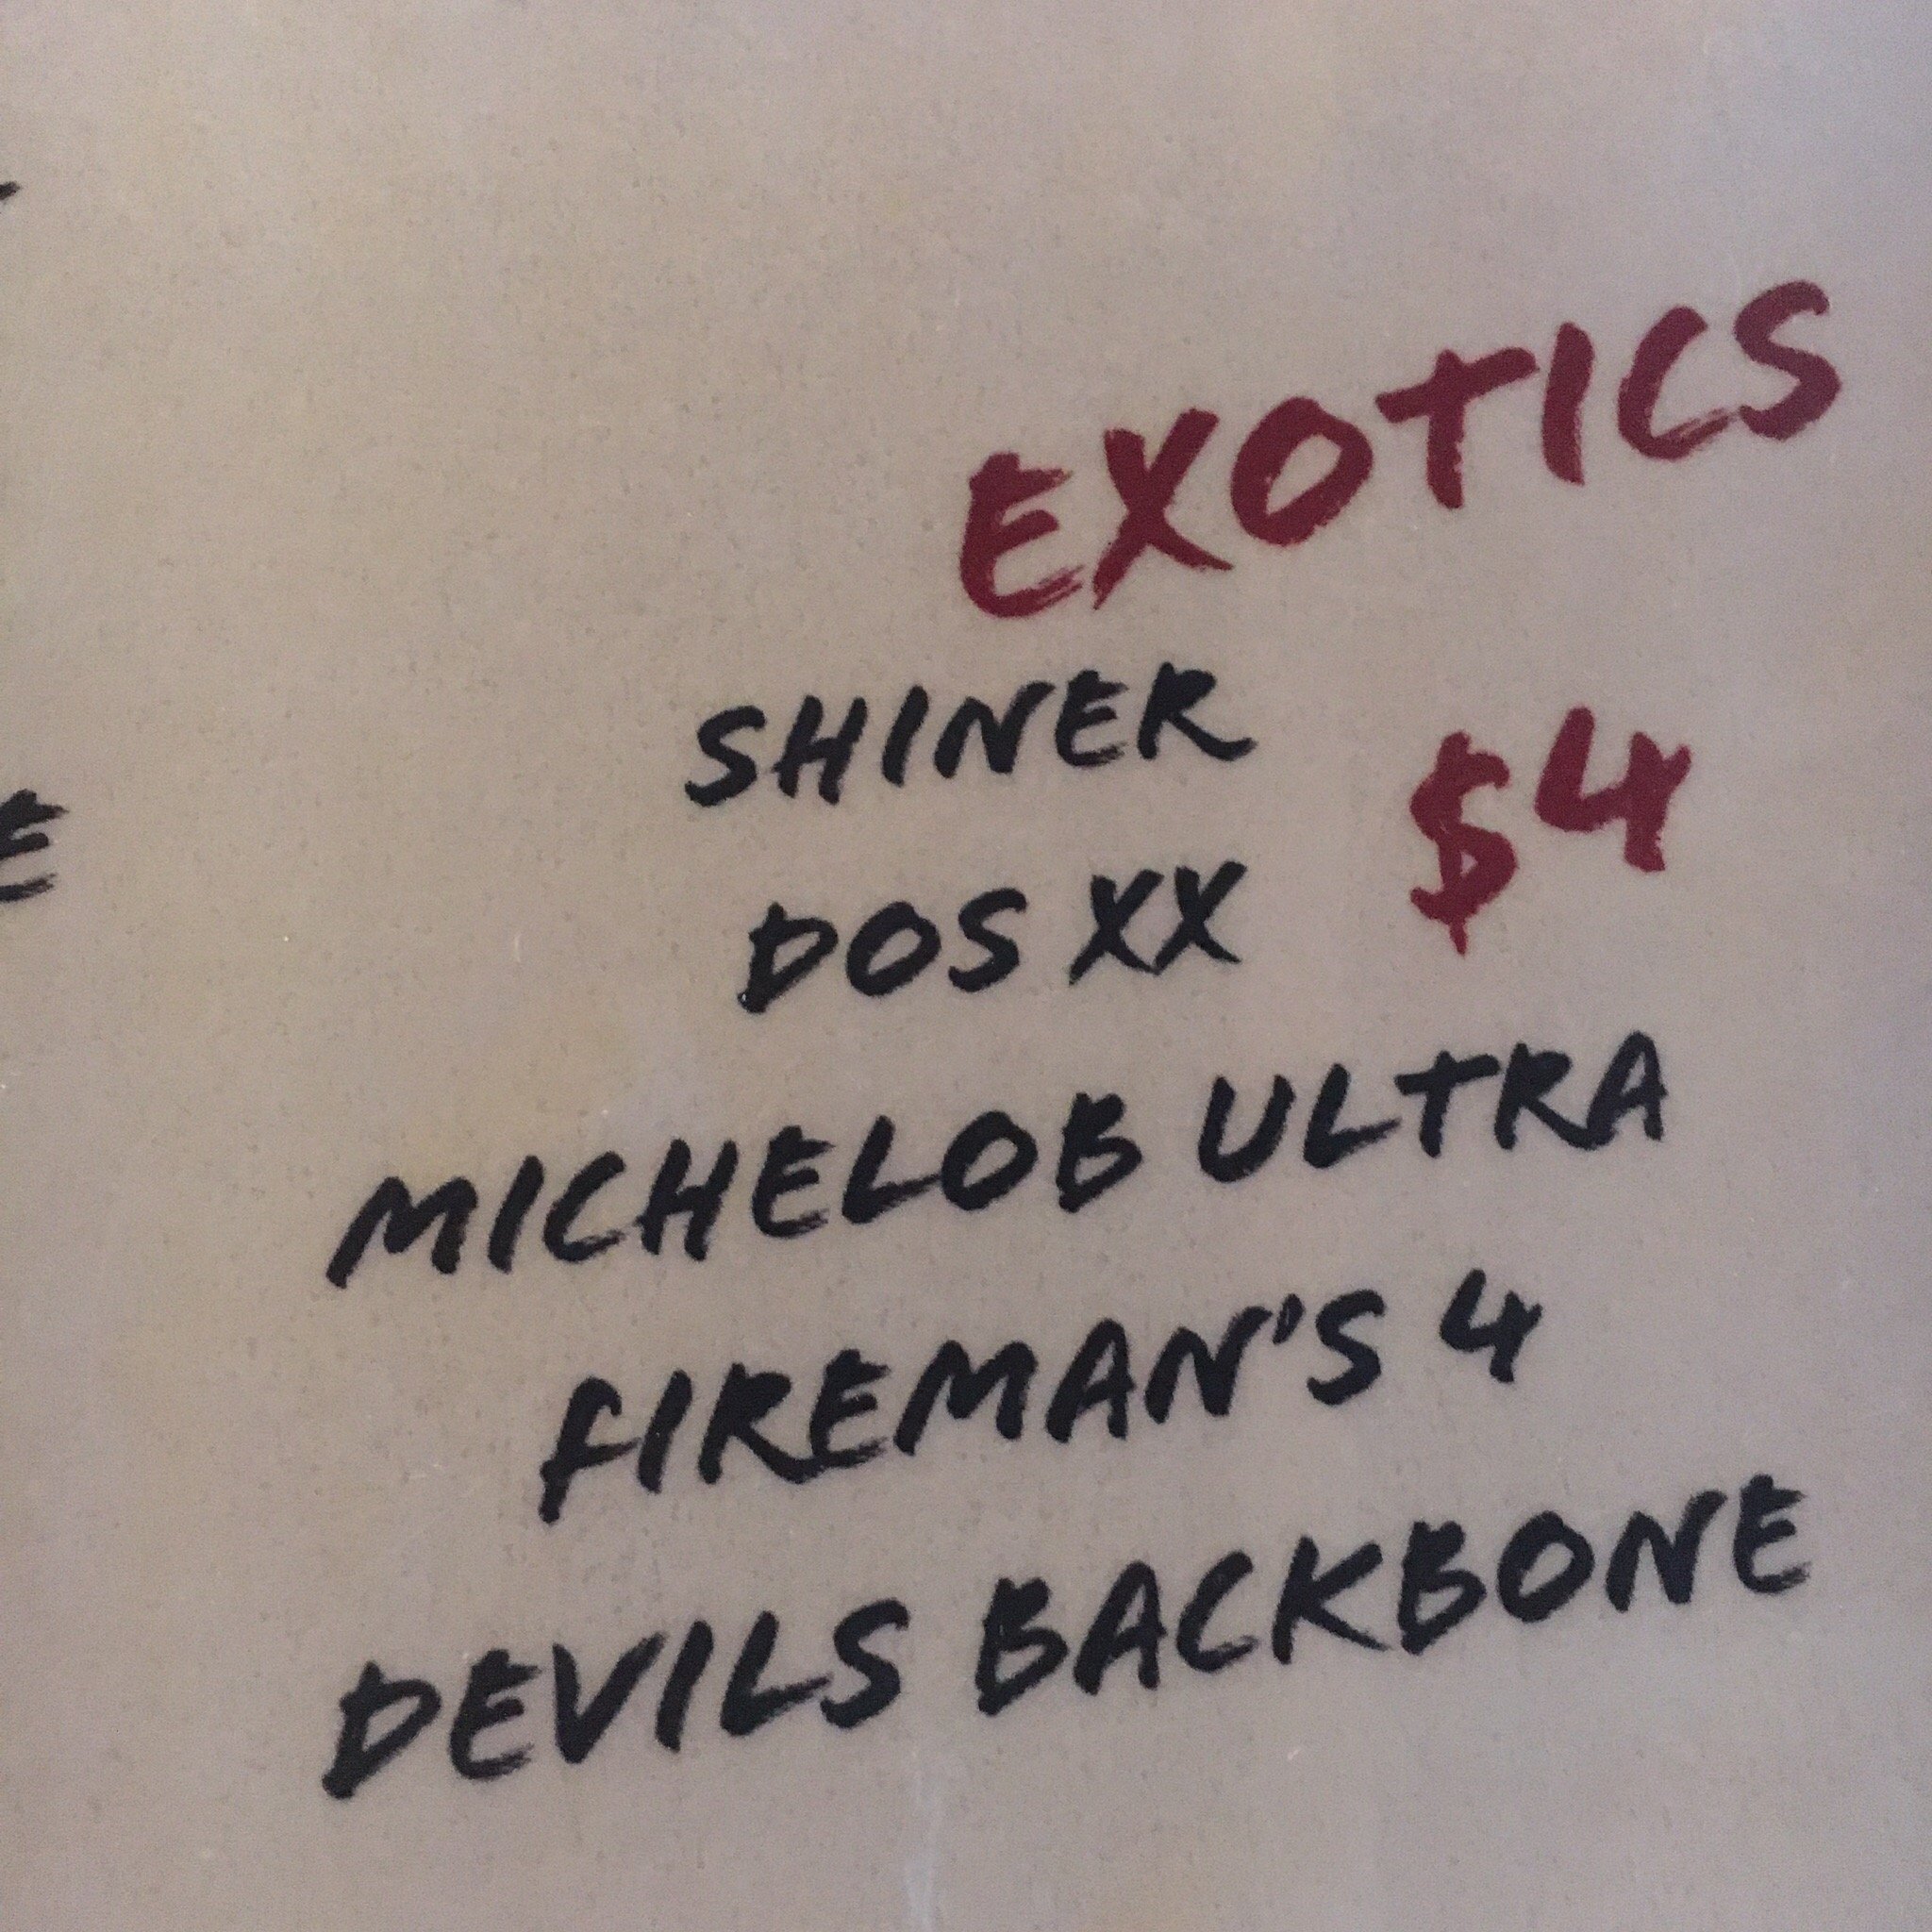 EXOTICS
SHINER
$4
DOS XX
MICHELOB ULTRA
FIREMAN'S 4
DEVILS BACKBONE